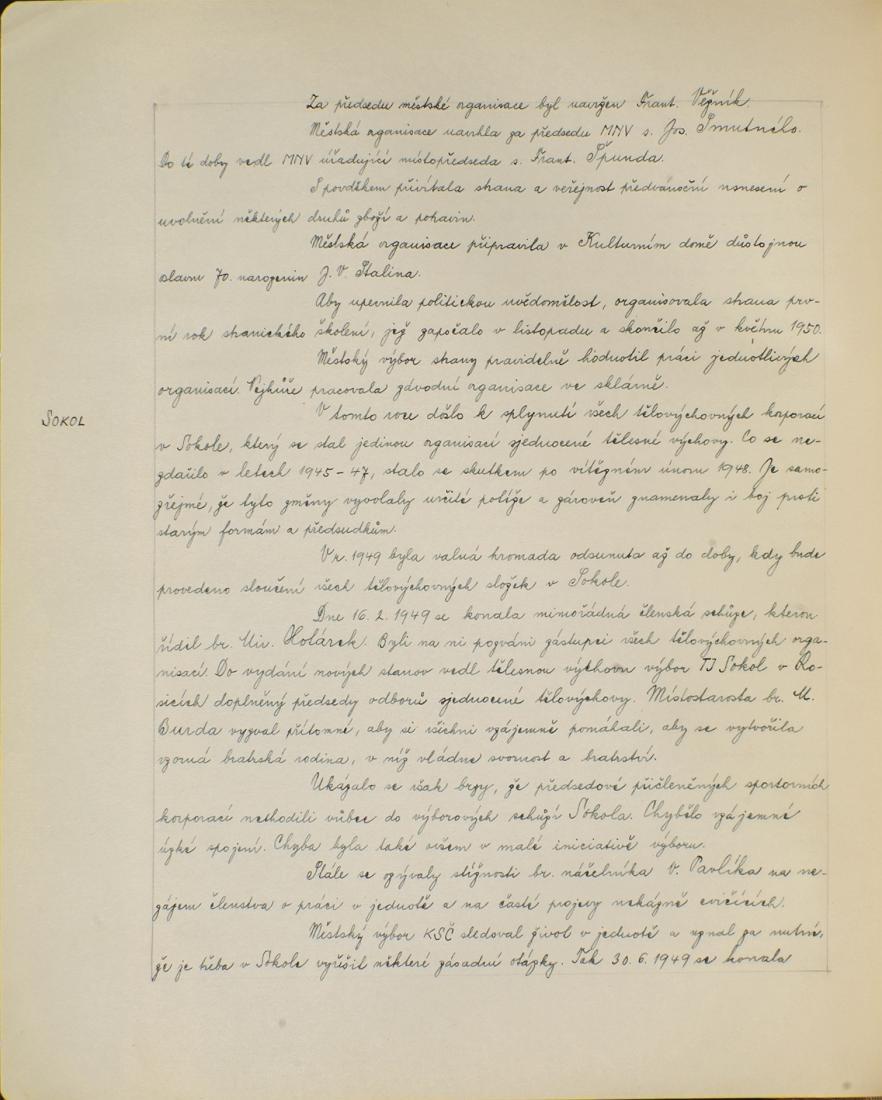 Za předsedu městské organisace byl navržen Frant. Věžník.
Městská organisace navrhla za předsedu MNV s. Jos. Smutného.
Do té doby vedl MNV úřadující místopředseda s. Frant. Špunda.
S povděkem přivítala strana a veřejnost předvánoční usnesení o
uvolnění některých druhů zboží a potravin.
Městská organisace připravila v Kulturním domě důstojnou
slavnu 70. narozenin J. V. Stalina.
Aby upevnila politickou uvědomělost, organisovala strana prv-
ní rok stranického školení, jež započalo v listopadu a skončilo až v květnu 1950.
Městský výbor strany pravidelně hodnotil práci jednotlivých
organisací. Nejhůře pracovala závodní organisace ve sklárně.
SOKOL
V tomto roce došlo k splynutí všech tělovýchovných korporací
v Sokole, který se stal jedinou organisací sjednocené tělesné výchovy. Co se ne-
zdařilo v letech 1945-47, stalo se skutkem po vítězném únoru 1948. Je samo-
zřejmé, že tyto změny vyvolaly určité potíže a zároveň znamenaly i boj proti
starým formám a předsudkům.
V r. 1949 byla valná hromada odsunuta až do doby, kdy bude
provedeno sloučení všech tělovýchovných složek v Sokole.
Dne 16. 2. 1949 se konala mimořádná členská schůze, kterou
řídil br. Mir. Holárek. Byli na ni pozváni zástupci všech tělovýchovných orga-
nisací. Do vydání nových stanov vedl tělesnou výchovu výbor TJ Sokol v Ro-
sicích doplněný předsedy odborů sjednocené tělovýchovy. Místostarosta br. M.
Burda vyzval přítomné, aby si všichni vzájemně pomáhali, aby se vytvořila
vzorná bratrská rodina, v níž vládne svornost a bratrství.
Ukázalo se však brzy, že předsedové přičleněných sportovních
korporací nechodili vůbec do výborových schůzí Sokola. Chybělo vzájemné
úzké spojení. Chyba byla také ovšem v malé iniciativě výboru.
Stále se ozývaly stížnosti br. náčelníka V. Pavlíka na ne-
zájem členstva o práci v jednotě a na časté projevy nekázně cvičících.
Městský výbor KSČ sledoval život v jednotě a uznal za nutné,
že je třeba v Sokole vyřešit některé zásadní otázky. Tak 30. 6. 1949 se konala